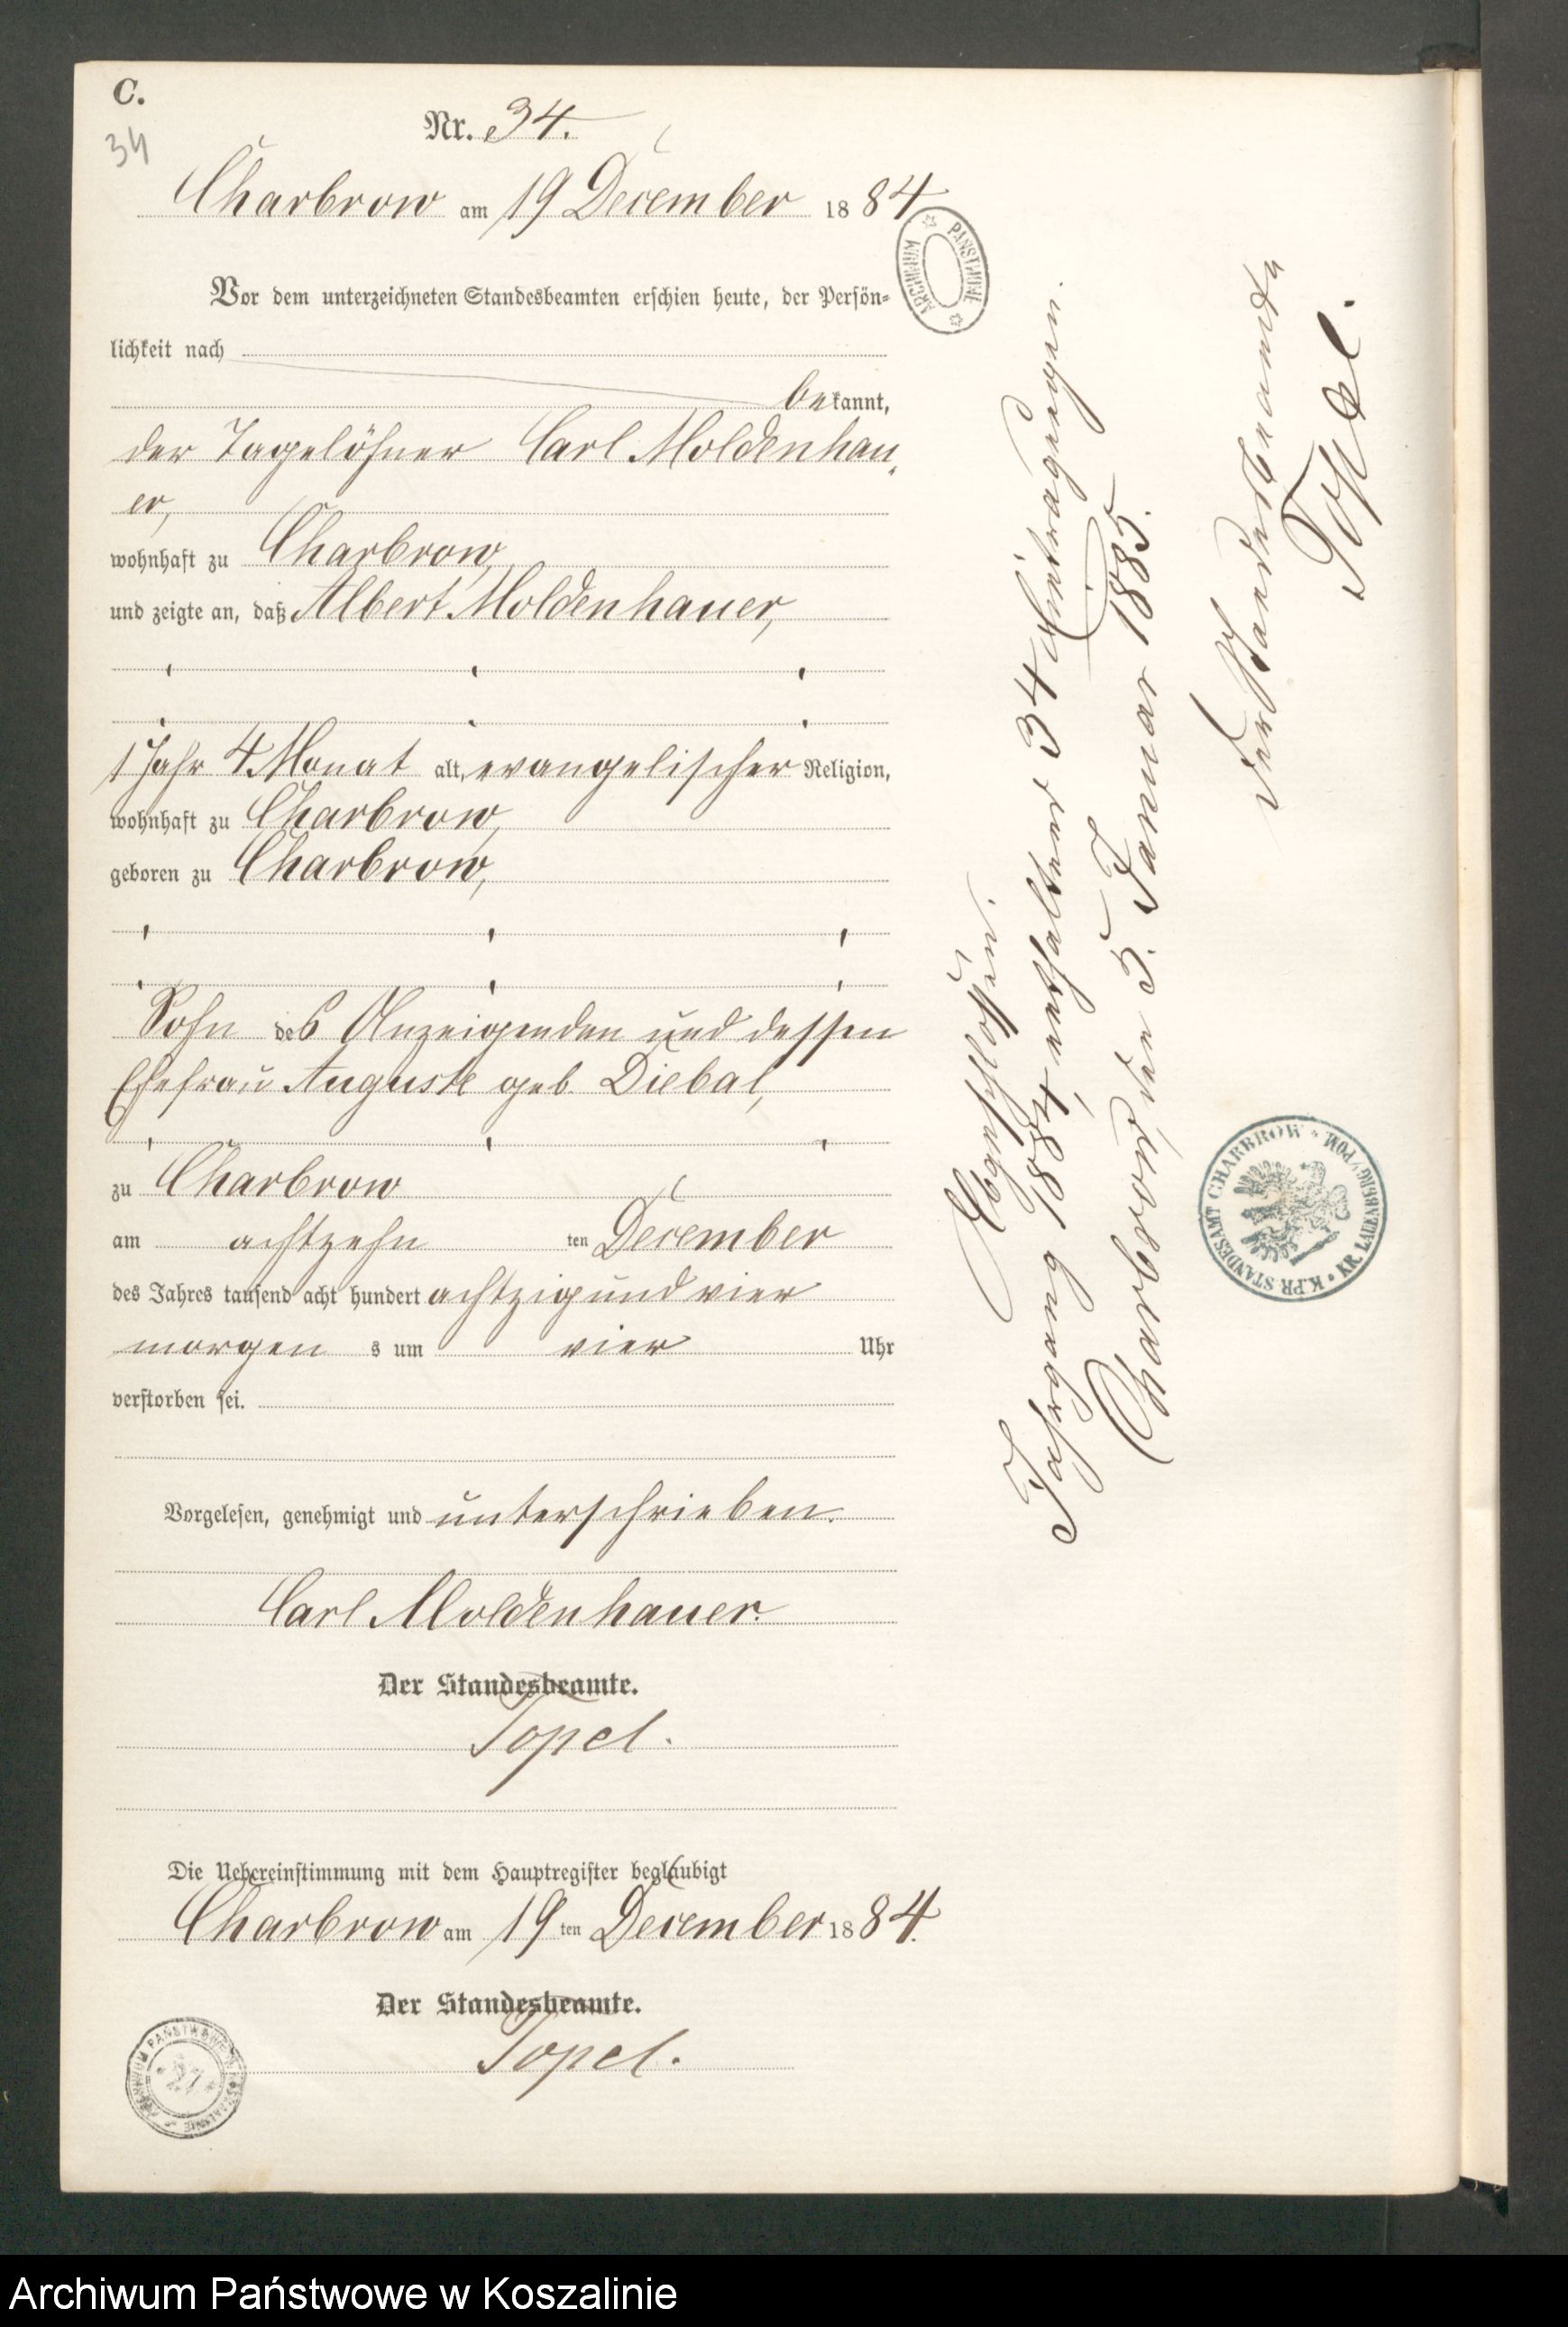 C.
34
Nr. 34.
Charbrow am 19 December 1884
Vor dem unterzeichneten Standesbeamten erschien heute, der Persön-
lichkeit nach
bekannt,
der Tagelöhner Carl Moldenhau-
er,
wohnhaft zu Charbrow,
und zeigte an, daß Albert Moldenhauer,
1 Jahr 4 Monat alt, evangelischer Religion,
wohnhaft zu Charbrow,
geboren zu Charbrow,
Sohn des Anzeigenden und dessen
Ehefrau Auguste geb. Diebal,
zu Charbrow
am achtzehn ten December
des Jahres tausend acht hundert achtzig und vier
morgen s um vier Uhr
verstorben sei.
Vorgelesen, genehmigt und unterschrieben.
Carl Moldenhauer.
Der Standesbeamte.
Topel.
Die Uebereinstimmung mit dem Hauptregister beglaubigt
Charbrow am 19 ten December 1884.
Der Standesbeamte.
Topel.
Abgeschlossen.
Jahrgang 1884, enthaltend 34 Eintragungen.
Charbrow, den 5. Januar 1885.
Der Standesbeamte
Topel.
ARCHIWUM PAŃSTWOWE
K.PR STANDESAMT CHARBROW * KR. LAUENBURG/POM.
ARCHIWUM PAŃSTWOWE
27
Archiwum Państwowe w Koszalinie